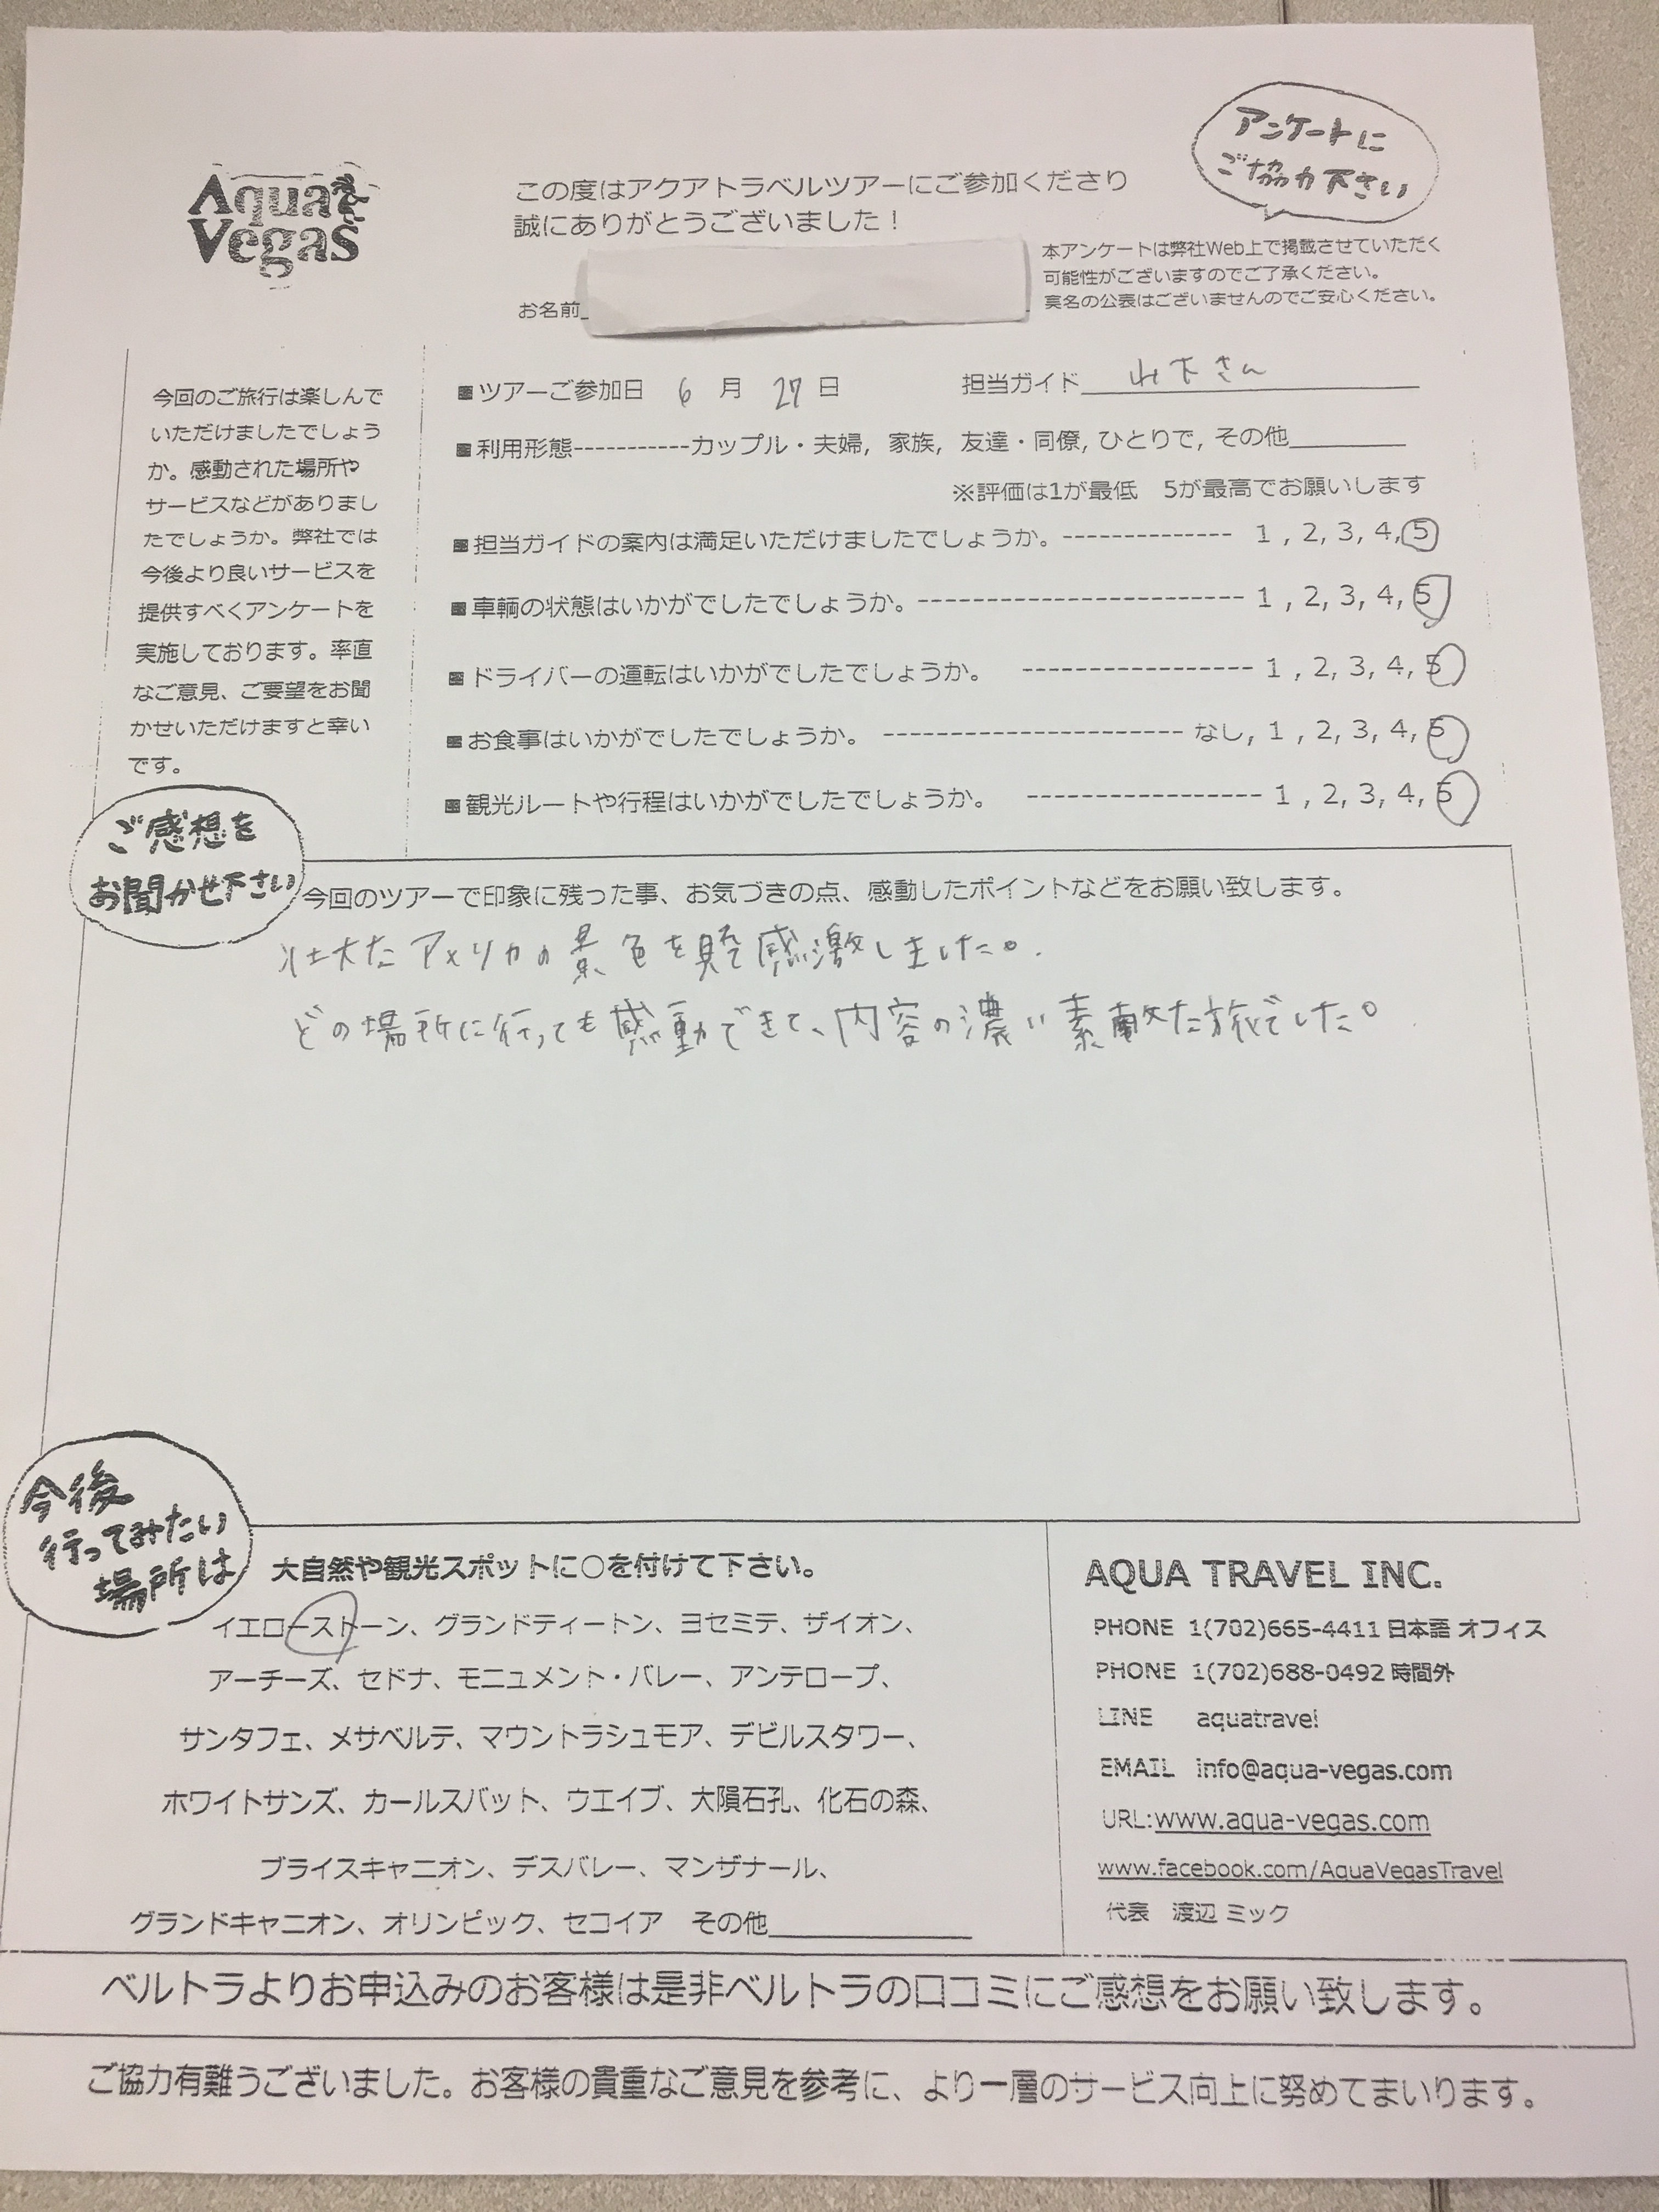 Aqua
Vegas
この度はアクアトラベルツアーにご参加くださり
誠にありがとうございました！
アンケートに
ご協力下さい
本アンケートは弊社Web上で掲載させていただく
可能性がございますのでご了承ください。
実名の公表はございませんのでご安心ください。
お名前
今回のご旅行は楽しんで
いただけましたでしょう
か。感動された場所や
サービスなどがありまし
たでしょうか。弊社では
今後より良いサービスを
提供すべくアンケートを
実施しております。率直
なご意見、ご要望をお聞
かせいただけますと幸い
です。
■ツアーご参加日 6 月 27 日 担当ガイド 山下さん
■利用形態-----------カップル・夫婦, 家族, 友達・同僚, ひとりで, その他
※評価は1が最低 5が最高でお願いします
■担当ガイドの案内は満足いただけましたでしょうか。-------------- 1 , 2, 3, 4, 5
■車輌の状態はいかがでしたでしょうか。--------------------------- 1 , 2, 3, 4, 5
■ドライバーの運転はいかがでしたでしょうか。 ------------------- 1 , 2, 3, 4, 5
■お食事はいかがでしたでしょうか。 ------------------------- なし, 1 , 2, 3, 4, 5
■観光ルートや行程はいかがでしたでしょうか。 ------------------- 1 , 2, 3, 4, 5
ご感想を
お聞かせ下さい
今回のツアーで印象に残った事、お気づきの点、感動したポイントなどをお願い致します。
壮大なアメリカの景色を見て感激しました。
どの場所に行っても感動できて、内容の濃い素敵な旅でした。
今後
行ってみたい
場所は
大自然や観光スポットに○を付けて下さい。
イエローストーン、グランドティートン、ヨセミテ、ザイオン、
アーチーズ、セドナ、モニュメント・バレー、アンテロープ、
サンタフェ、メサベルテ、マウントラシュモア、デビルスタワー、
ホワイトサンズ、カールスバット、ウエイブ、大隕石孔、化石の森、
ブライスキャニオン、デスバレー、マンザナール、
グランドキャニオン、オリンピック、セコイア その他
AQUA TRAVEL INC.
PHONE 1(702)665-4411 日本語 オフィス
PHONE 1(702)688-0492 時間外
LINE aquatravel
EMAIL info@aqua-vegas.com
URL:www.aqua-vegas.com
www.facebook.com/AquaVegasTravel
代表 渡辺 ミック
ベルトラよりお申込みのお客様は是非ベルトラの口コミにご感想をお願い致します。
ご協力有難うございました。お客様の貴重なご意見を参考に、より一層のサービス向上に努めてまいります。